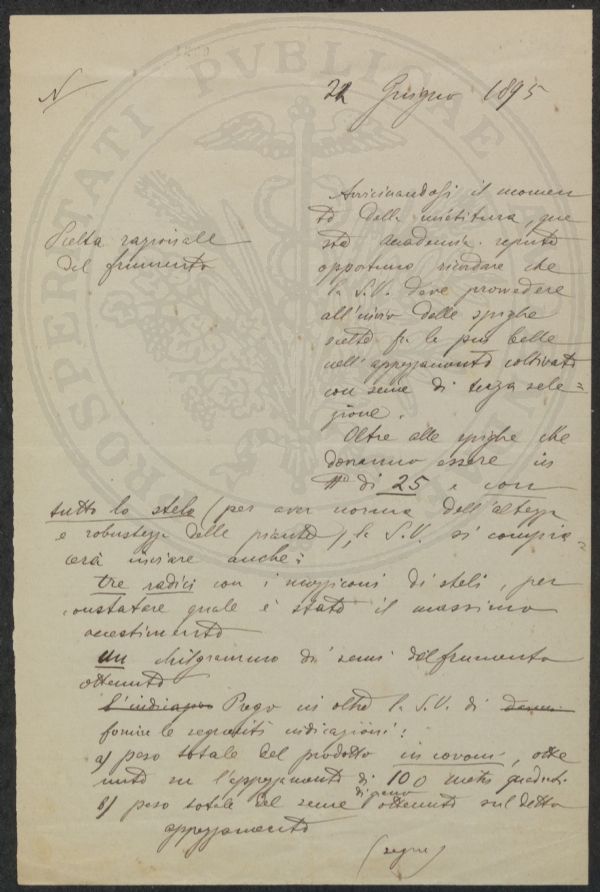 N
22 Giugno 1895
Scelta razionale
del frumento
Avvicinandosi il momen
to della mietitura, que
sta Accademia reputa
opportuno ricordare che
la S.V. deve provvedere
all'invio delle spighe
scelte fra le più belle
nell'appezzamento coltivato
con seme di terza sele=
zione.
Oltre alle spighe che
dovranno essere in
N° di 25 e con
tutto lo stelo (per aver norma dell'altezza
e robustezza delle piante), la S.V. si compia=
cerà inviare anche:
tre radici con i mozziconi di steli, per
constatare quale è stato il massimo
accestimento
un chilgrammo di semi del frumento
ottenuto
l'indicazione Prego in oltre la S.V. di
fornire le seguenti indicazioni:
a) peso totale del prodotto in covoni, otte
nuto su l'appezzamento di 100 metri quadrati.
b) peso totale del seme di grano ottenuto sul detto
appezzamento
(segue)
PROSPERITATI PVBLICAE